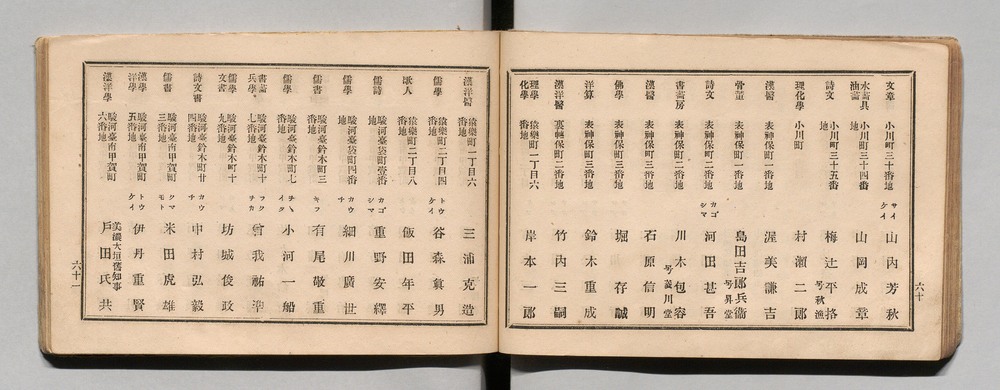 文章 小川町三十番地 サイケイ 山内芳秋
水畫具油畫 小川町三十四番地 山岡成章
詩文 小川町三十五番地 梅辻平格 号秋漁
理化學 小川町 村瀬二郎
漢醫 表神保町一番地 渥美謙吉
骨董 表神保町一番地 島田吉郎兵衞 号昇堂
詩文 表神保町二番地 カゴシマ 河田甚吾
書畵房 表神保町二番地 川木包容 号義川堂
漢醫 表神保町三番地 石原信明
佛學 表神保町三番地 堀存誠
洋算 表神保町三番地 鈴木重成
漢洋醫 裏神保町二番地 竹内三嗣
理學化學 猿樂町二丁目六番地 岸本一郎
六十
漢洋醫 猿樂町二丁目六番地 三浦克造
儒學 猿樂町二丁目四番地 トウケイ 谷森眞男
歌人 猿樂町二丁目八番地 飯田年平
儒詩 駿河臺袋町壹番地 カゴシマ 重野安繹
儒學 駿河臺袋町四番地 カウチ 細川廣世
儒書 駿河臺鈴木町三番地 キフ 有尾敬重
儒學 駿河臺鈴木町七番地 小河一船
書畵兵學 駿河臺鈴木町十七番地 フクチカ 曾我祐準
儒學文書 駿河臺鈴木町十九番地 坊城俊政
詩文書 駿河臺鈴木町廿四番地 カウチ 中村弘毅
儒書 駿河臺南甲賀町三番地 クマモト 米田虎雄
漢學洋學 駿河臺南甲賀町五番地 トウケイ 伊丹重賢
漢洋學 駿河臺南甲賀町六番地 美濃大垣舊知事 戸田氏共
六十一